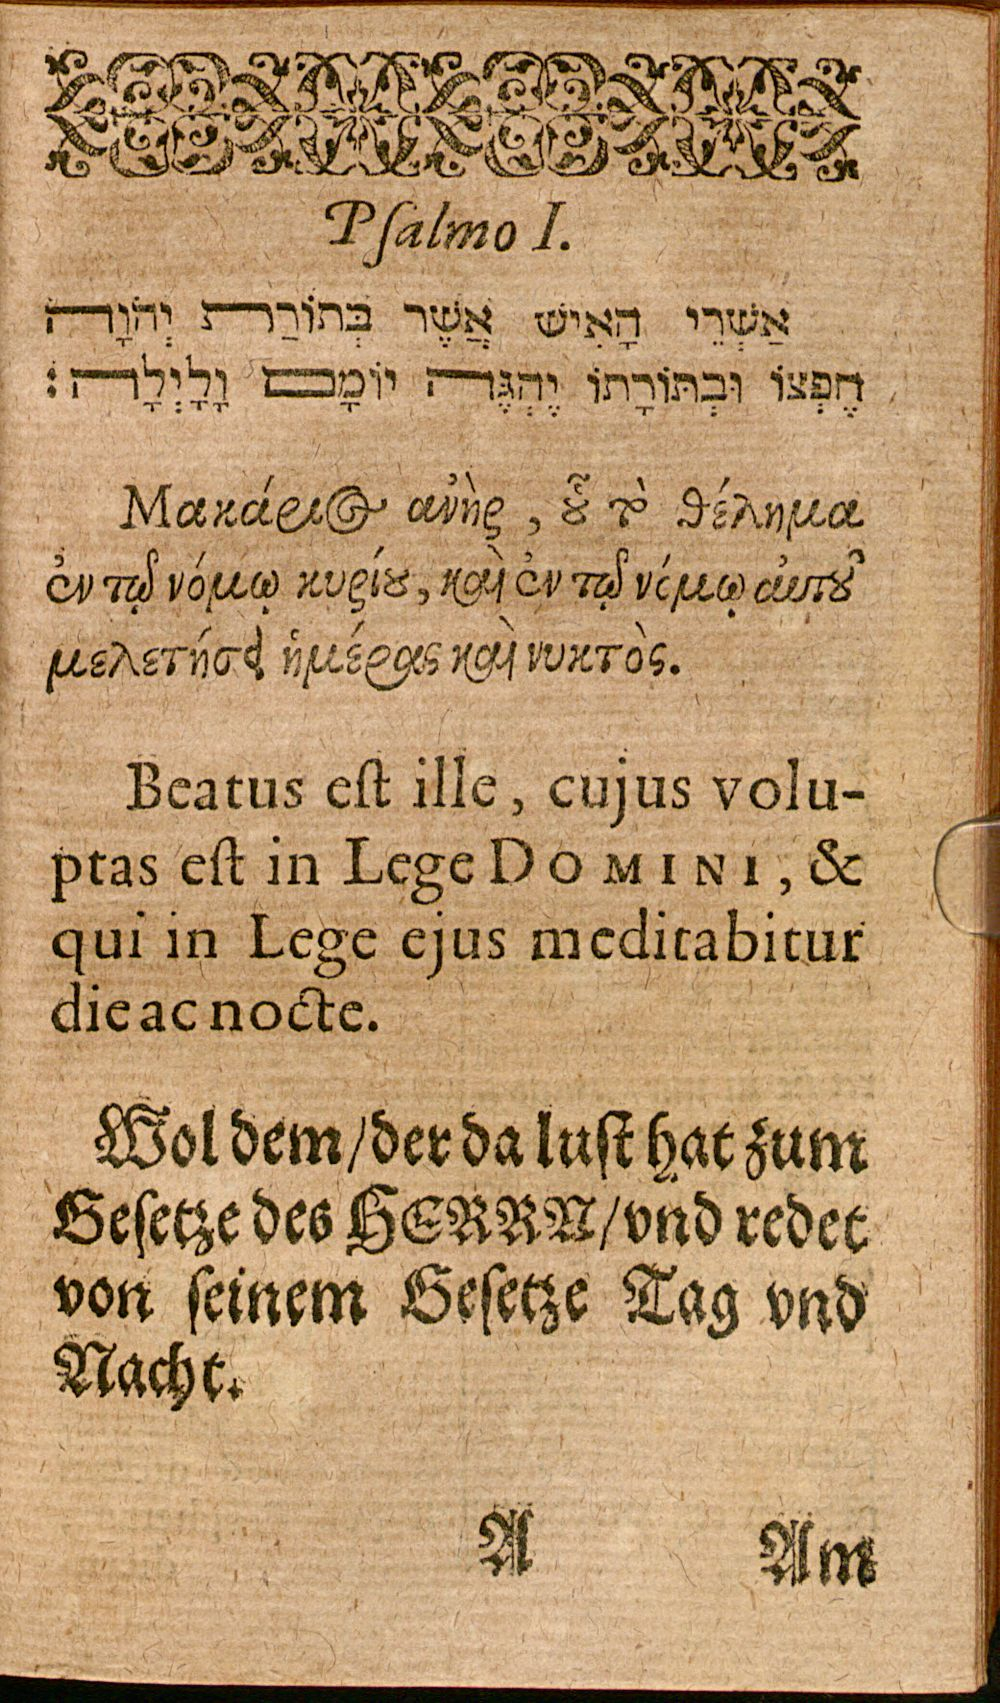 Psalmo I.
אַשְׁרֵי הָאִישׁ אֲשֶׁר בְּתוֹרַת יְהֹוָה
חֶפְצוֹ וּבְתּוֹרָתוֹ יֶהְגֶּה יוֹמָם וָלָיְלָה׃
Μακάριος ανὴρ, οὗ τὸ θέλημα
ἐν τῷ νόμῳ κυρίου, καὶ ἐν τῷ νόμῳ αὐτοῦ
μελετήσει ἡμέρας καὶ νυκτὸς.
Beatus est ille, cujus volu-
ptas est in Lege DOMINI, &
qui in Lege ejus meditabitur
die ac nocte.
Wol dem/der da lust hat zum
Gesetze des HERRN/vnd redet
von seinem Gesetze Tag vnd
Nacht.
A Am